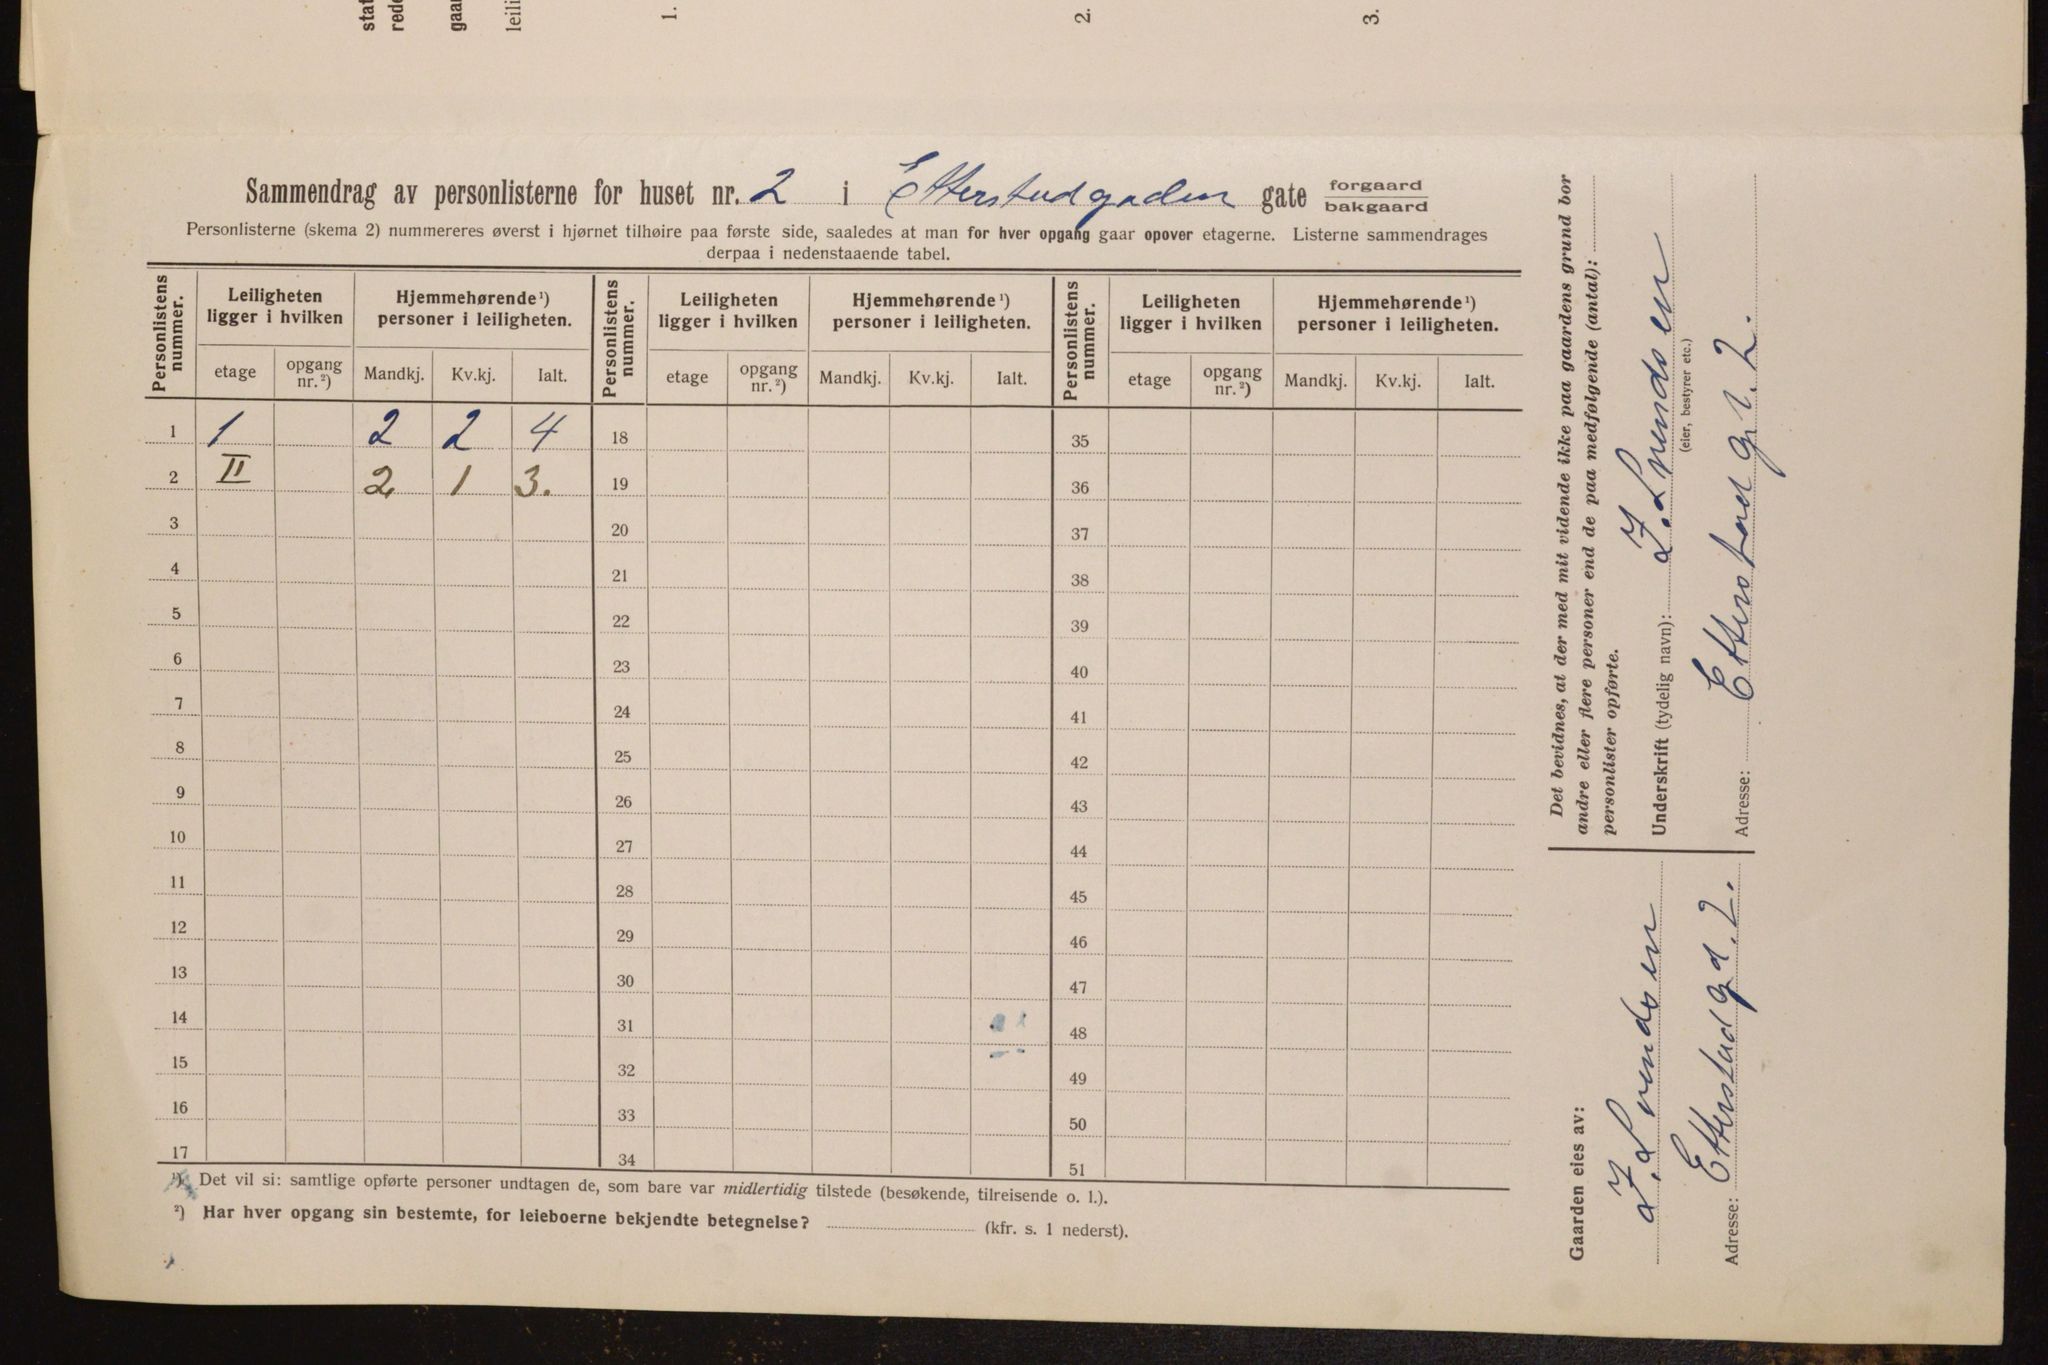 stat
rede
gaar
leili
1.
2.
3.
Sammendrag av personlisterne for huset nr. 2 i Etterstadgaden gate forgaard
bakgaard
Personlisterne (skema 2) nummereres øverst i hjørnet tilhøire paa første side, saaledes at man for hver opgang gaar opover etagerne. Listerne sammendrages
derpaa i nedenstaaende tabel.
Personlistens nummer. Leiligheten ligger i hvilken Hjemmehørende ¹) personer i leiligheten. Personlistens nummer. Leiligheten ligger i hvilken Hjemmehørende ¹) personer i leiligheten. Personlistens nummer. Leiligheten ligger i hvilken Hjemmehørende ¹) personer i leiligheten.
etage opgang nr. ²) Mandkj. Kv.kj. Ialt. etage opgang nr. ²) Mandkj. Kv.kj. Ialt. etage opgang nr. ²) Mandkj. Kv.kj. Ialt.
1 1 2 2 4 18 35
2 II 2 1 3. 19 36
3 20 37
4 21 38
5 22 39
6 23 40
7 24 41
8 25 42
9 26 43
10 27 44
11 28 45
12 29 46
13 30 47
14 31 48
15 32 49
16 33 50
17 34 51
¹) Det vil si: samtlige opførte personer undtagen de, som bare var midlertidig tilstede (besøkende, tilreisende o. l.).
²) Har hver opgang sin bestemte, for leieboerne bekjendte betegnelse? (kfr. s. 1 nederst).
Det bevidnes, at der med mit vidende ikke paa gaardens grund bor
andre eller flere personer end de paa medfølgende (antal):
personlister opførte.
Underskrift (tydelig navn): Z. Svendsen
(eier, bestyrer etc.)
Adresse: Etterstadgt. 2.
Gaarden eies av:
Z. Svendsen
Adresse: Etterstadgd. 2.